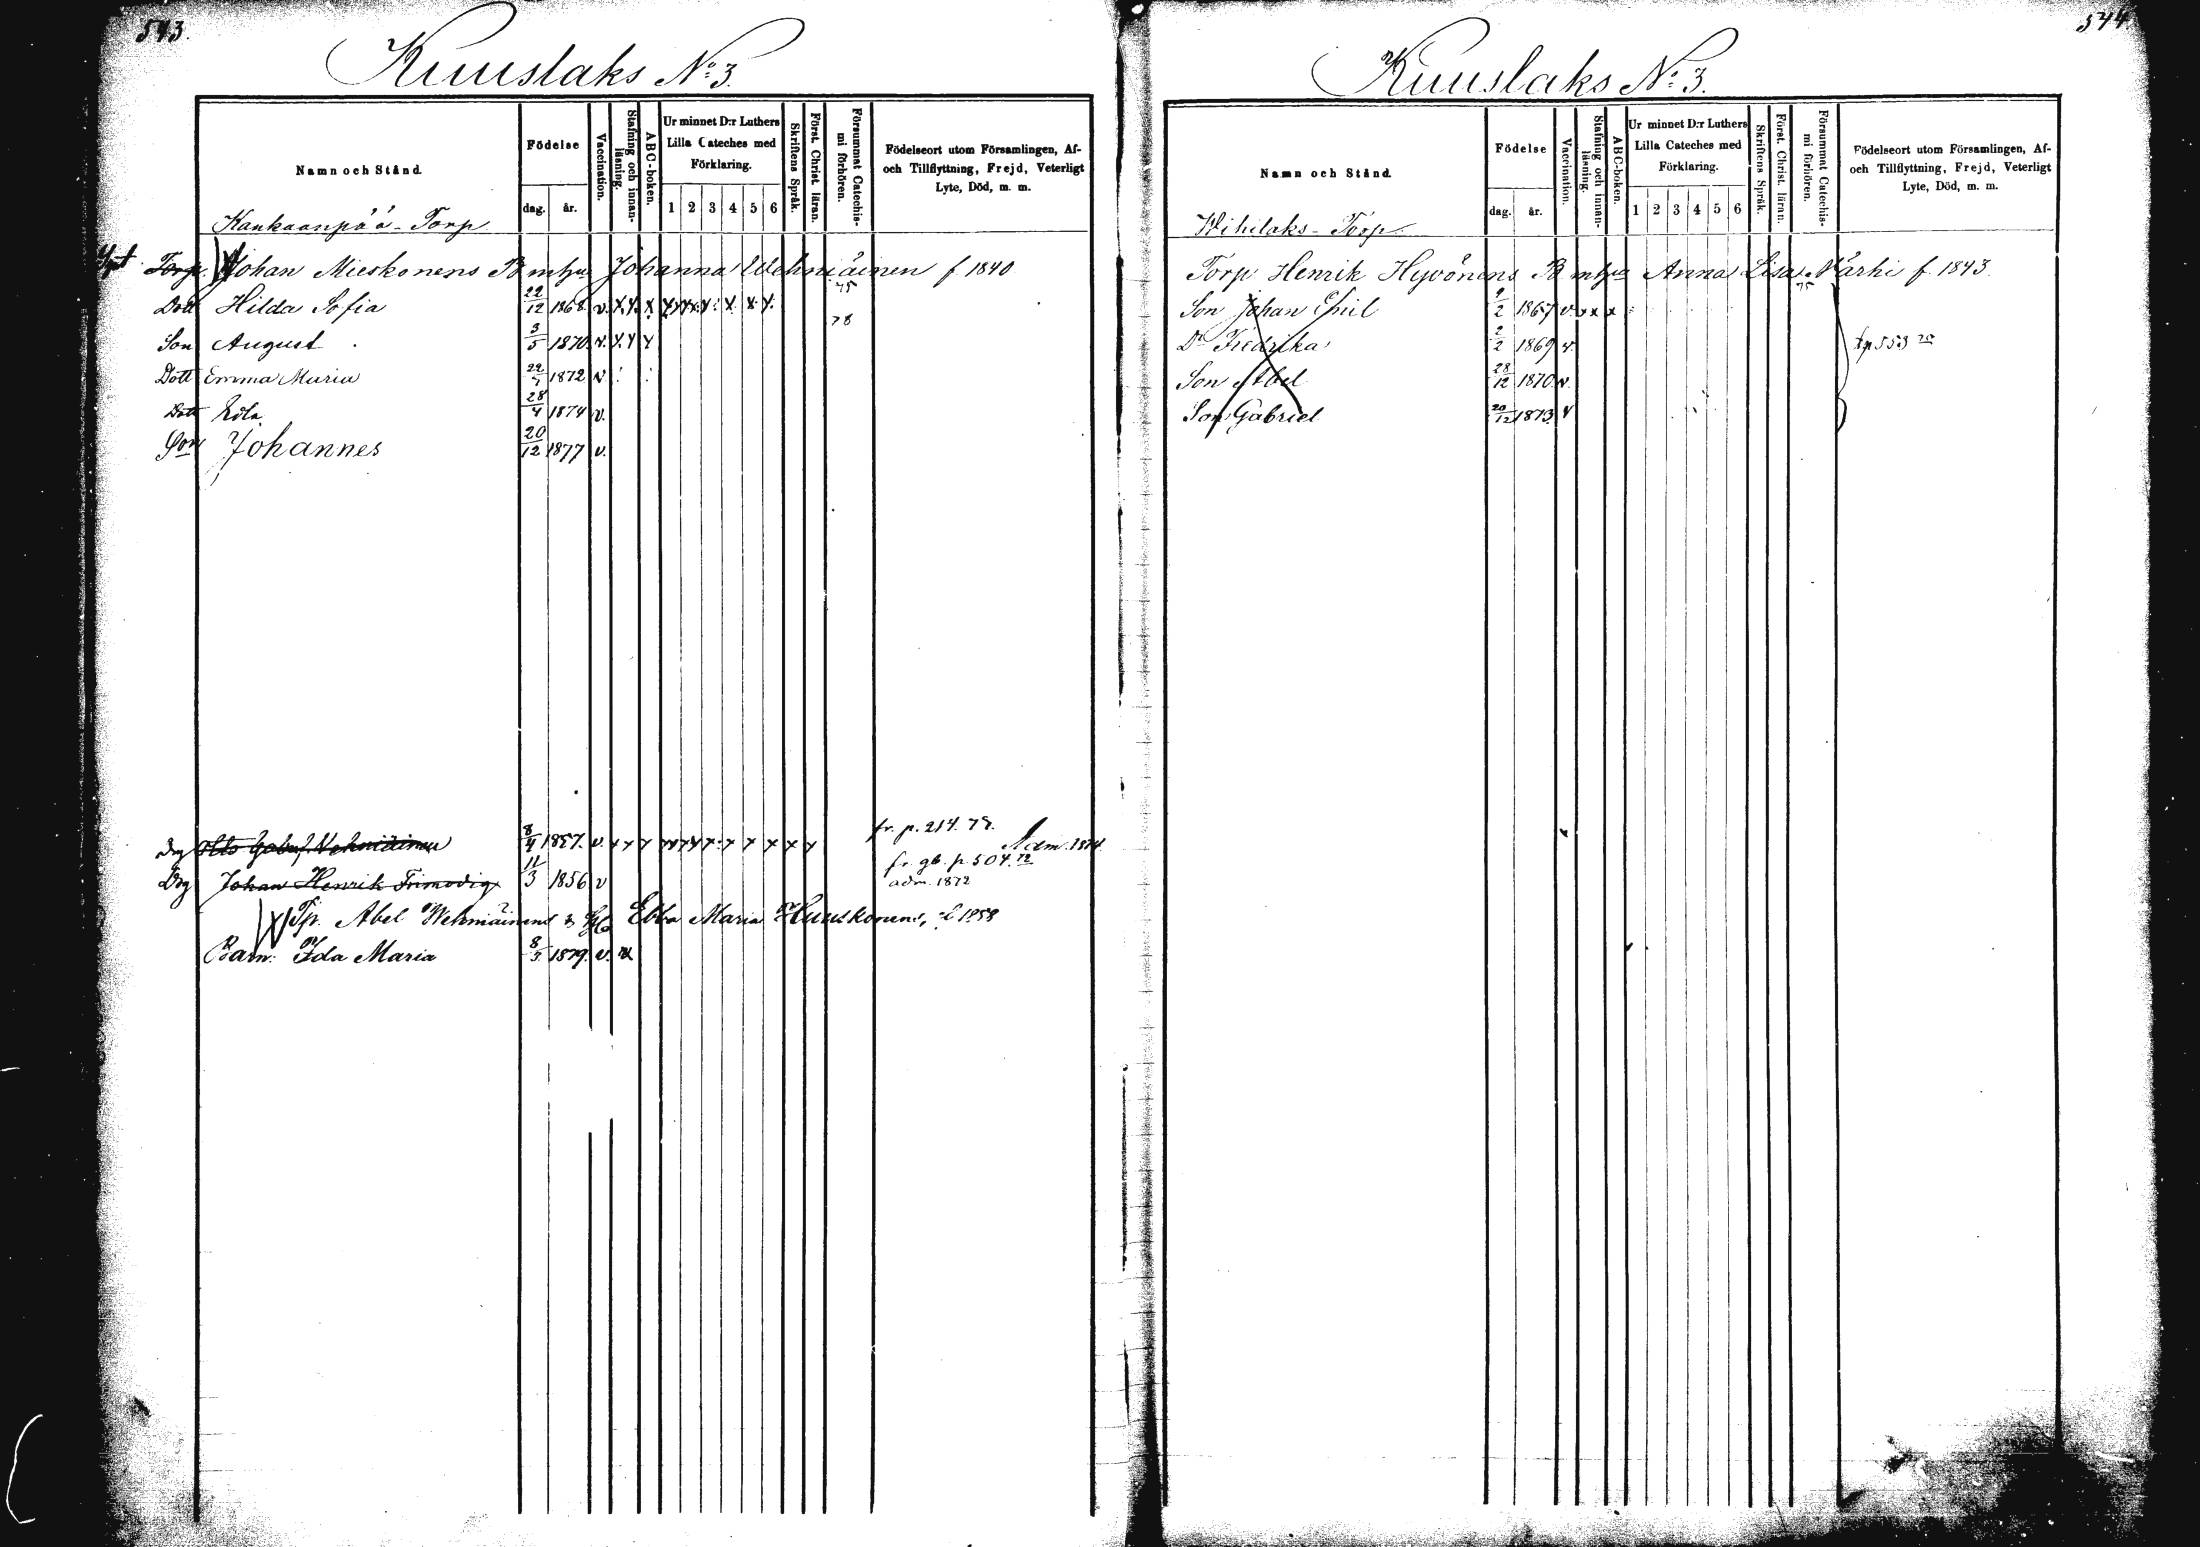 543.
Kuuslaks No 3.
Namn och Stånd.
Födelse
dag.
år.
Vaccination.
Stafning och innan-
läsning.
ABC-boken.
Ur minnet D:r Luthers
Lilla Cateches med
Förklaring.
1 2 3 4 5 6
Skriftens Språk.
Först. Christ. läran.
Försummat Catechis-
mi förhören.
Födelseort utom Församlingen, Af-
och Tillflyttning, Frejd, Veterligt
Lyte, Död, m. m.
Kankaanpää - Torp
Torp. Johan Mieskonens B m hu Johanna Wehniäinen f 1840
Dott Hilda Sofia 22/12 1868 v. x x. x x x x x x x x. 75
Son August 3/5 1870 v. x x x 78
Dott Emma Maria 22/7 1872 v
Dott Eda 28/4 1874 v.
Son Johannes 20/12 1877 v.
fr. p. 214. 78.
Drg Otto Gabr. Wehniäinen 8/4 1857. v. x x x x x x x x x x x Adm. 1874
fr. gb. p 504. 72
Drg Johan Henrik Frimodig 11/3 1856 v adm. 1872
Tp. Abel Wehniäinens & Ebba Maria Huuskonens, f. 1858
Barn: Ida Maria 8/3 1879. v. x
544
Kuuslaks No 3.
Namn och Stånd.
Födelse
dag.
år.
Vaccination.
Stafning och innan-
läsning.
ABC-boken.
Ur minnet D:r Luthers
Lilla Cateches med
Förklaring.
1 2 3 4 5 6
Skriftens Språk.
Först. Christ. läran.
Försummat Catechis-
mi förhören.
Födelseort utom Församlingen, Af-
och Tillflyttning, Frejd, Veterligt
Lyte, Död, m. m.
Wihilaks - Torp
Torp Henrik Hyvönens B m hu Anna Lisa Närhi f. 1843.
75
Son Johan Emil 9/2 1867 v. x x x
Dr Fredrika 2/2 1869 v. tp 553 75
Son Abel 28/12 1870 v.
Son Gabriel 20/12 1873. v